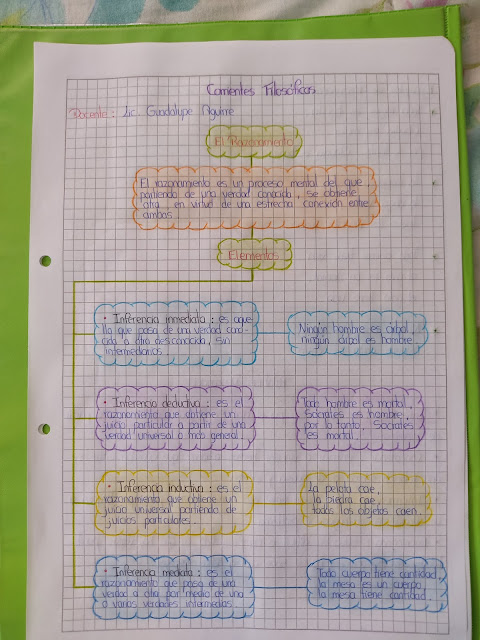 Corrientes Filosóficas
Docente: Lic. Guadalupe Aguirre
El Razonamiento
El razonamiento es un proceso mental del que
partiendo de una verdad conocida, se obtiene
otra en virtud de una estrecha conexión entre
ambas.
Elementos
• Inferencia inmediata: es aque
lla que pasa de una verdad cono-
cida a otra desconocida, sin
intermediarios.
Ningún hombre es árbol,
ningún árbol es hombre.
• Inferencia deductiva: es el
razonamiento que obtiene un
juicio particular a partir de una
verdad universal o más general.
Todo hombre es mortal,
Sócrates es hombre,
por lo tanto, Sócrates
es mortal.
• Inferencia inductiva: es el
razonamiento que obtiene un
juicio universal partiendo de
juicios particulares.
La pelota cae,
la piedra cae,
todos los objetos caen.
• Inferencia mediata: es el
razonamiento que pasa de una
verdad a otra por medio de una
o varias verdades intermedias.
Todo cuerpo tiene cantidad,
la mesa es un cuerpo,
la mesa tiene cantidad.